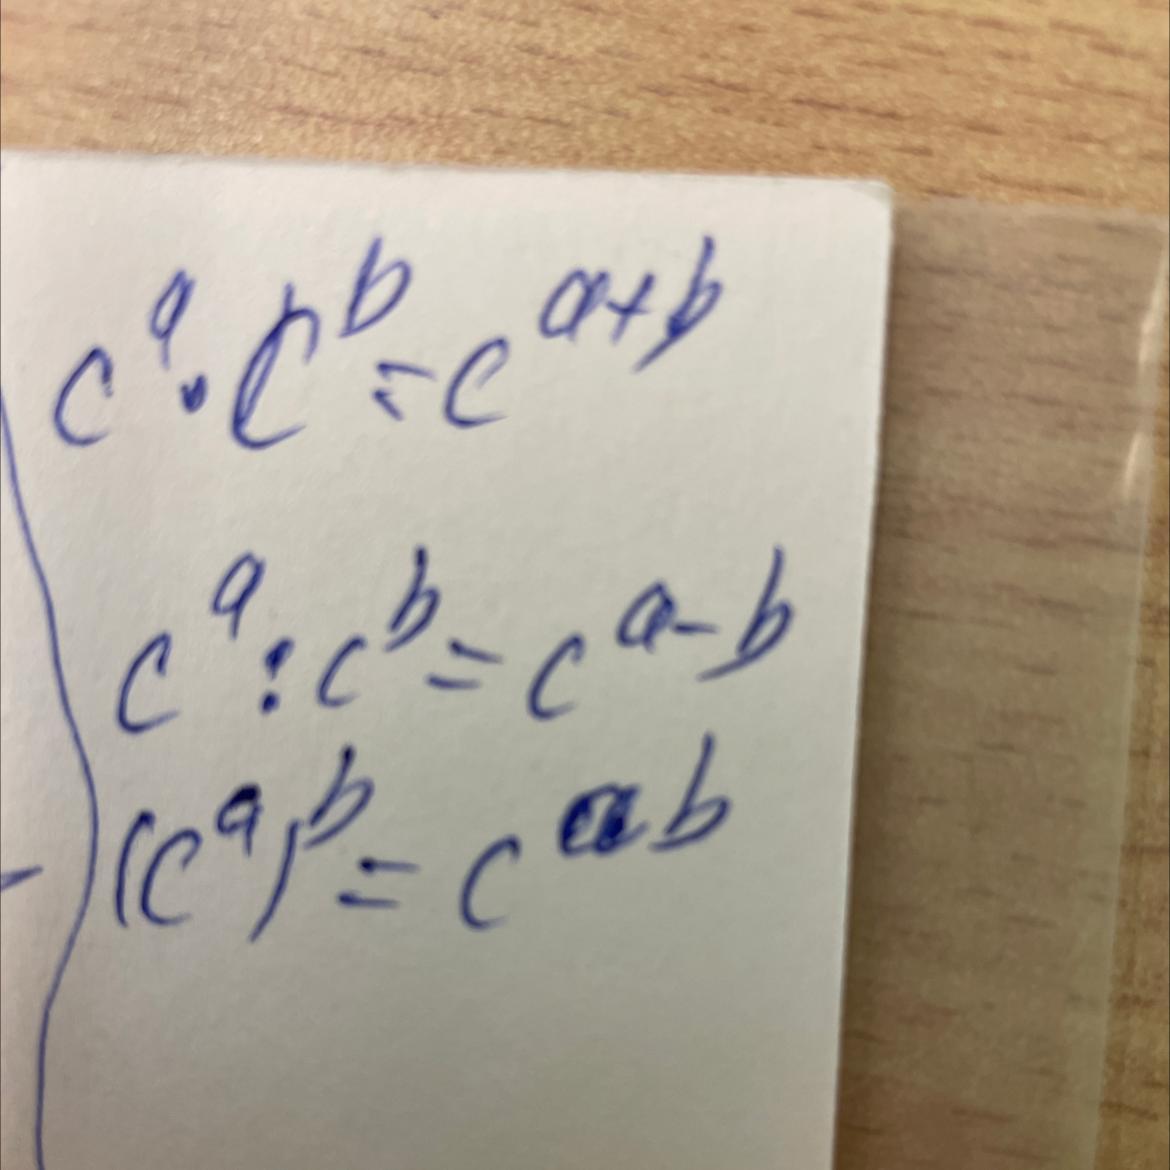 c^a · c^b = c^{a+b}
c^a : c^b = c^{a-b}
(c^a)^b = c^{ab}